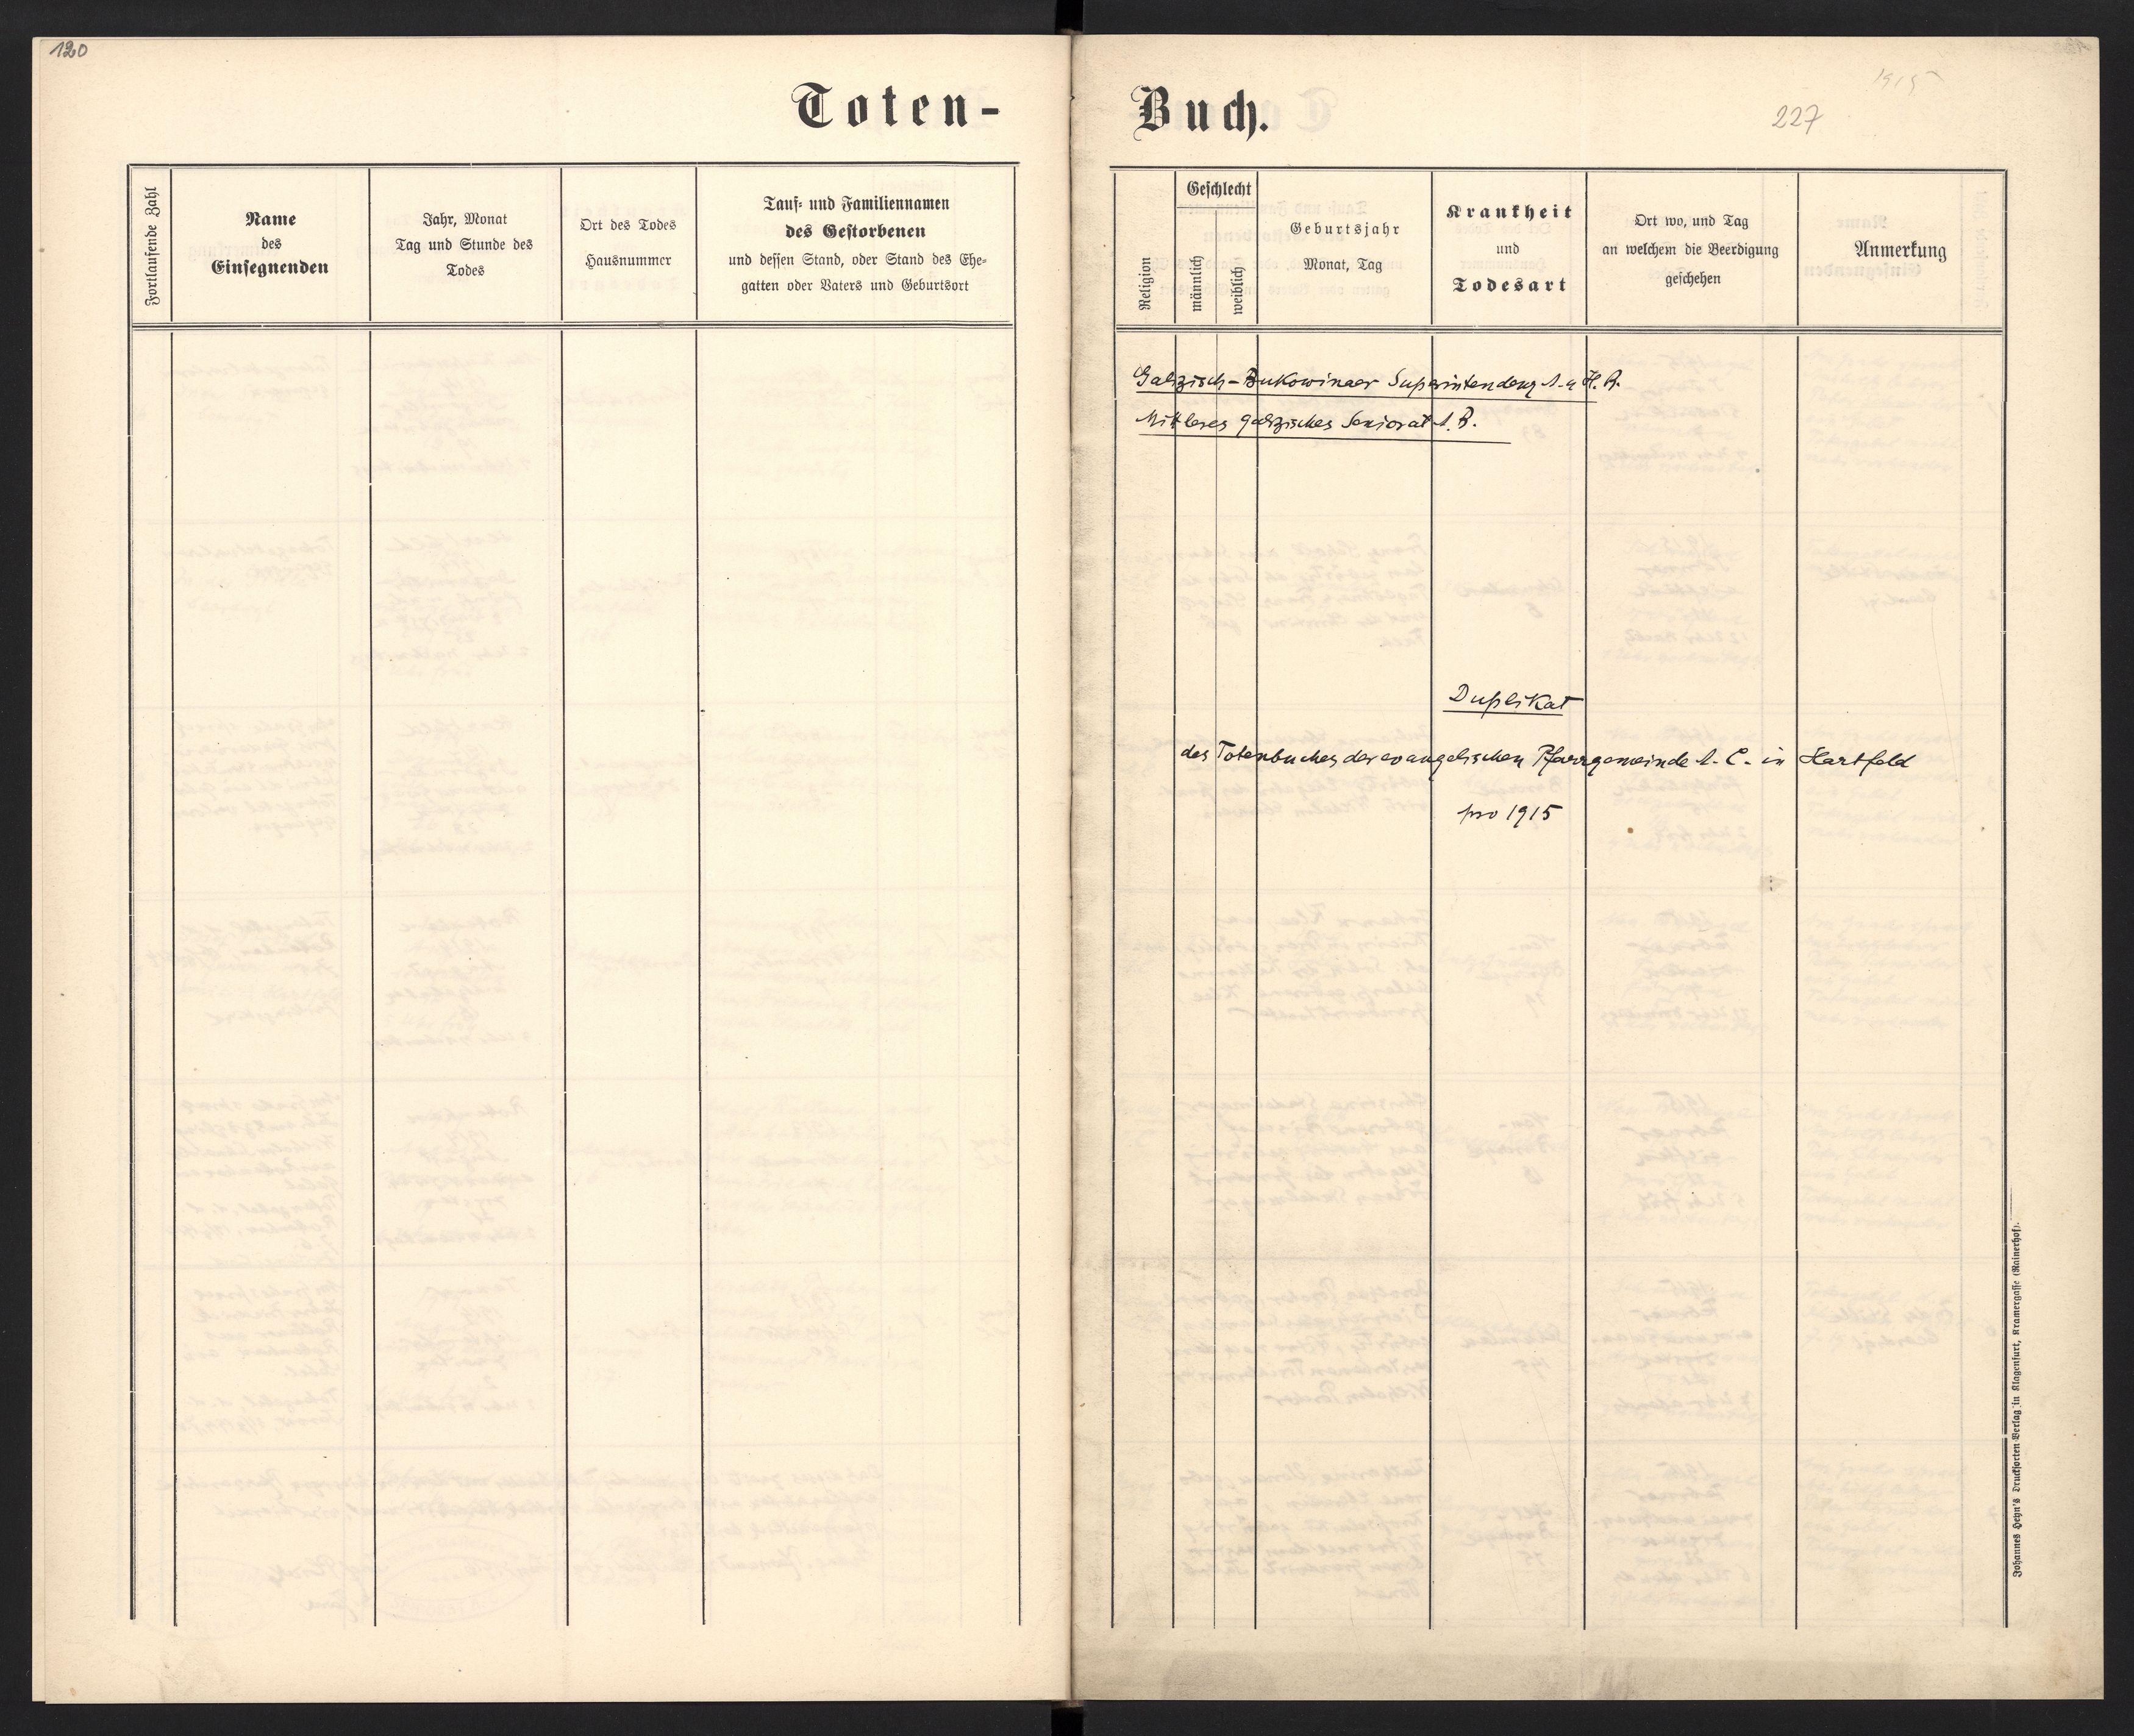 120
Toten-
Fortlaufende Zahl
Name
des
Einsegnenden
Jahr, Monat
Tag und Stunde des
Todes
Ort des Todes
Hausnummer
Tauf- und Familiennamen
des Gestorbenen
und dessen Stand, oder Stand des Ehe-
gatten oder Vaters und Geburtsort
Buch.
1915
227
Religion
Geschlecht
männlich
weiblich
Geburtsjahr
Monat, Tag
Krankheit
und
Todesart
Ort wo, und Tag
an welchem die Beerdigung
geschehen
Anmerkung
Galizisch-Bukowinaer Superintendenz A. u H. B.
Mittleres galizisches Seniorat A. B.
Duplikat
des Totenbuches der evangelischen Pfarrgemeinde A. C. in Hartfeld
pro 1915
Johannes Heyn's Drucksorten Verlag in Klagenfurt, Kramergasse (Rainerhof).